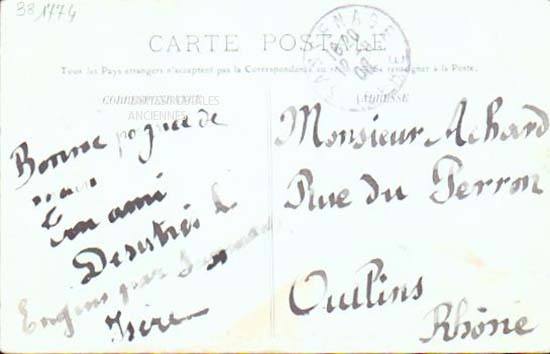 38 1774
CARTE POSTALE
Tous les Pays étrangers n'acceptent pas la Correspondance au renseigner à la Poste.
CORRESPONDANCE
ADRESSE
ANCIENNES
SASSENAGE
Bonne pognee de
main
Ton ami
Engins par Sassenage
Isère
Monsieur Achard
Rue du Perron
Oullins
Rhône